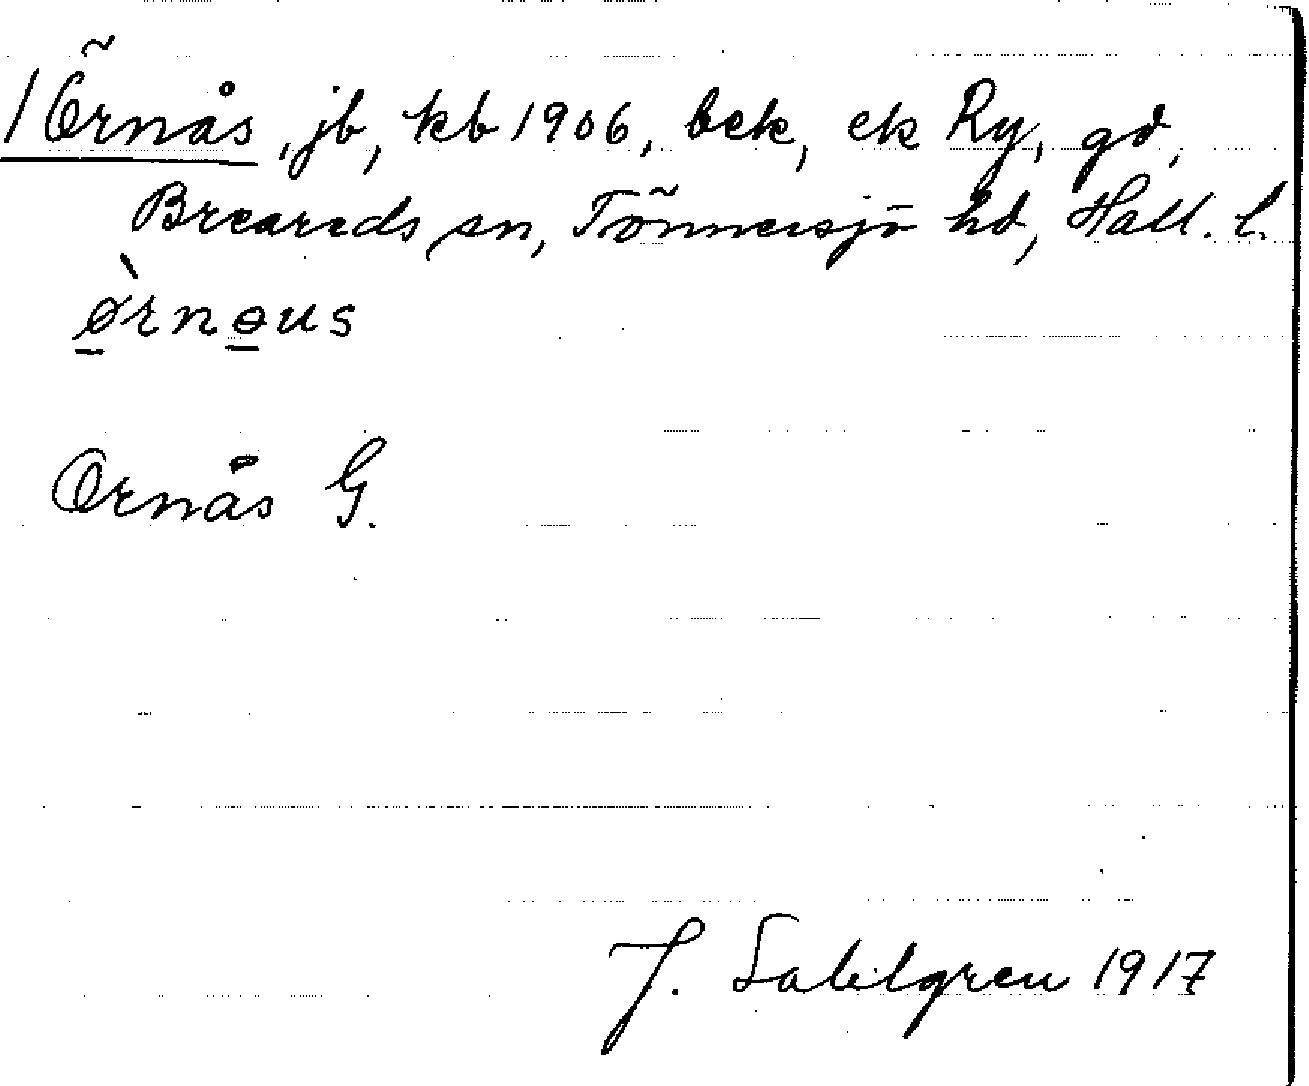 / Örnås, jb, kb 1906, bek, ek Ry, gd,
Breareds sn, Tönnersjö hd, Hall. l.
ø̀rnɵus
Ornås G.
J. Sahlgren 1917